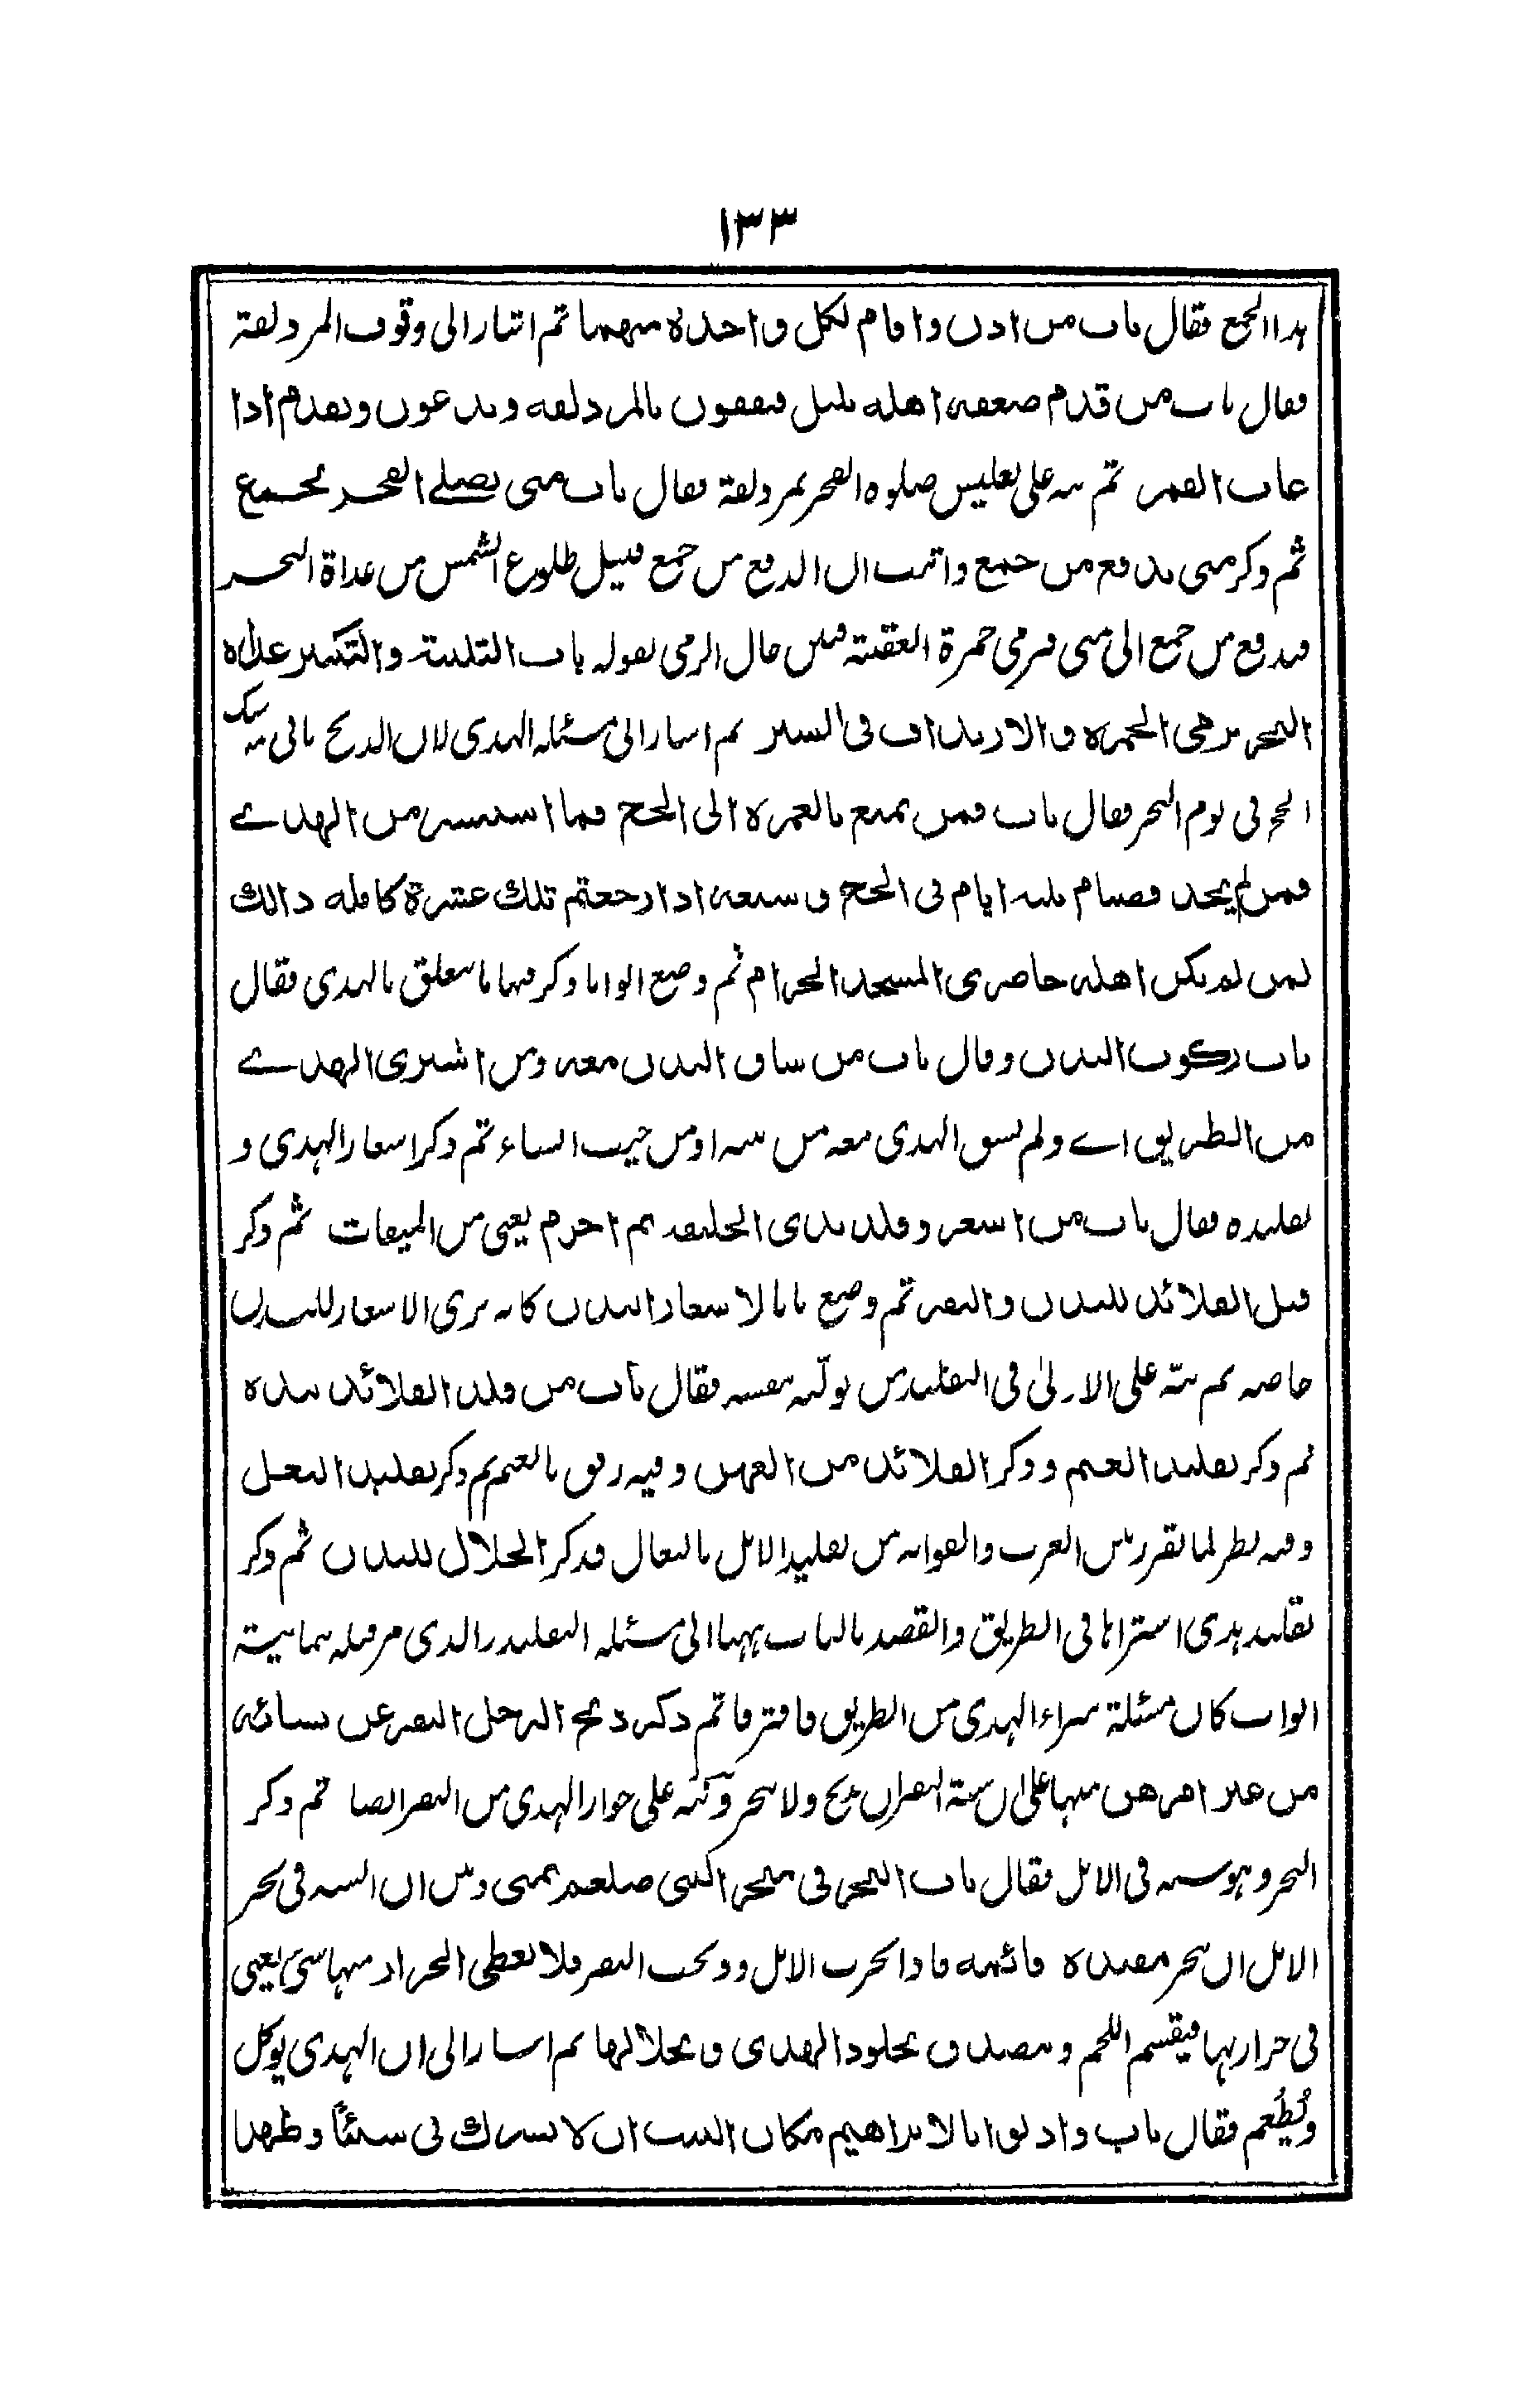 ١٣٣
هذا الجمع فقال باب من اذن واقام لكل واحدة منهما ثم اشار الى وقوف المزدلفة
فقال باب من قدم ضعفة اهله بليل فيقفون بالمزدلفه ويدعون ويقدم اذا
غاب القمر ثم نبه على تغليس صلوه الفجر بمزدلفة فقال باب متى يصلے الفجر بجمع
ثم ذكر متى يدفع من جمع واثبت ان الدفع من جمع قبيل طلوع الشمس من غداة النحر
فيدفع من جمع الى منى فيرمي جمرة العقبة فبين حال الرمى بقوله باب التلبية والتكبير غداه
النحر يرمى الجمره والارتداف فى السير ثم اشار الى مسئله الهدى لان الذبح ثانى نسك
الحج فى يوم النحر فقال باب فمن تمتع بالعمرة الى الحج فما استيسر من الهدے
فمن لم يجد فصيام ثلثه ايام فى الحج وسبعه اذا رجعتم تلك عشرة كامله ذالك
لمن لم يكن اهله حاضرى المسجد الحرام ثم وضع ابوابا وذكر فيها ما يتعلق بالهدى فقال
باب ركوب البدن وقال باب من ساق البدن معه ومن اشترى الهدے
من الطريق اے ولم يسق الهدى معه من بيته او من حيث انشاء ثم ذكر اشعار الهدى و
تقليده فقال باب من اشعر وقلد بذى الحليفه ثم احرم يعنى من الميقات ثم ذكر
فتل القلائد للبدن والبقر ثم وضع بابا لاشعار البدن كانه يرى الاشعار للبدن
خاصه ثم نبّه على الاولىٰ فى التقليد من تولّيه بنفسه فقال باب من قلد القلائد بيده
ثم ذكر تقليد الغنم وذكر القلائد من العهن وفيه رفق بالغنم ثم ذكر تقليد النعل
وفيه نظر لما تقرر بين العرب والعوام من تقليد الابل بالنعال فذكر الجلال للبدن ثم ذكر
تقليد هدى اشتراها فى الطريق والقصد بالباب ههنا الى مسئله التقليد والذى مر قبله بثمانية
ابواب كان مسئلة شراء الهدى من الطريق فافترقا ثم ذكر ذبح الرجل البقر عن نسائه
من غير امرهن منبها على ان سنة البقر ان يذبح ولا ينحر ونبّه على جواز الهدى من البقر ايضا ثم ذكر
النحر وهو سنه فى الابل فقال باب النحر فى منحر النبى صلعم بمنى وبين ان السنه فى نحر
الابل ان ينحر مقيده قائمه فاذا نحرت الابل وذبحت البقر فلا يعطى الجزار منها شئ يعنى
فى جزارتها فيقسم اللحم ويتصدق بجلود الهدى وبجلالها ثم اشار الى ان الهدى يوكل
ويُطْعم فقال باب واذ بوانا لابراهيم مكان البيت ان لا تشرك بى شيئاً وطهر